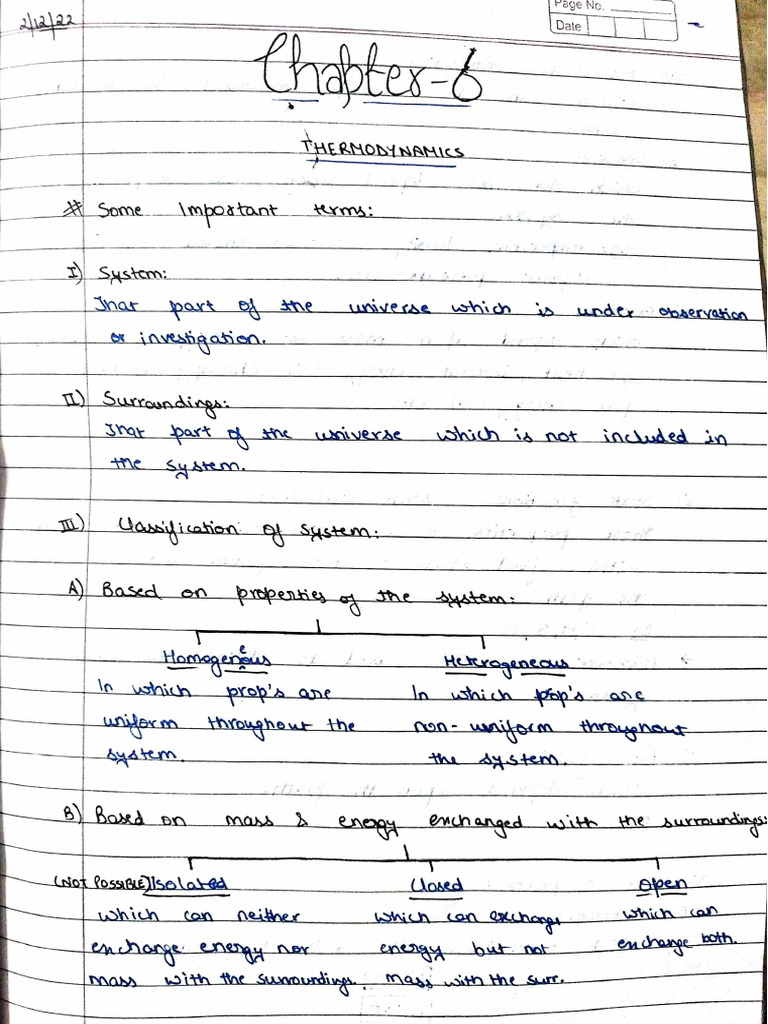 2/12/22
Page No.
Date
Chapter-6
THERMODYNAMICS
# Some Important terms:
I) System:
That part of the universe which is under observation
or investigation.
II) Surroundings:
That part of the universe which is not included in
the system.
III) Classification of system:
A) Based on properties of the system:
Homogeneous Heterogeneous
In which prop's are In which pop's are
uniform throughout the non-uniform throughout
system. the system.
B) Based on mass & energy exchanged with the surroundings:
(NOT POSSIBLE) Isolated Closed Open
which can neither which can exchange which can
exchange energy nor energy but not exchange both.
mass with the surroundings. mass with the surr.